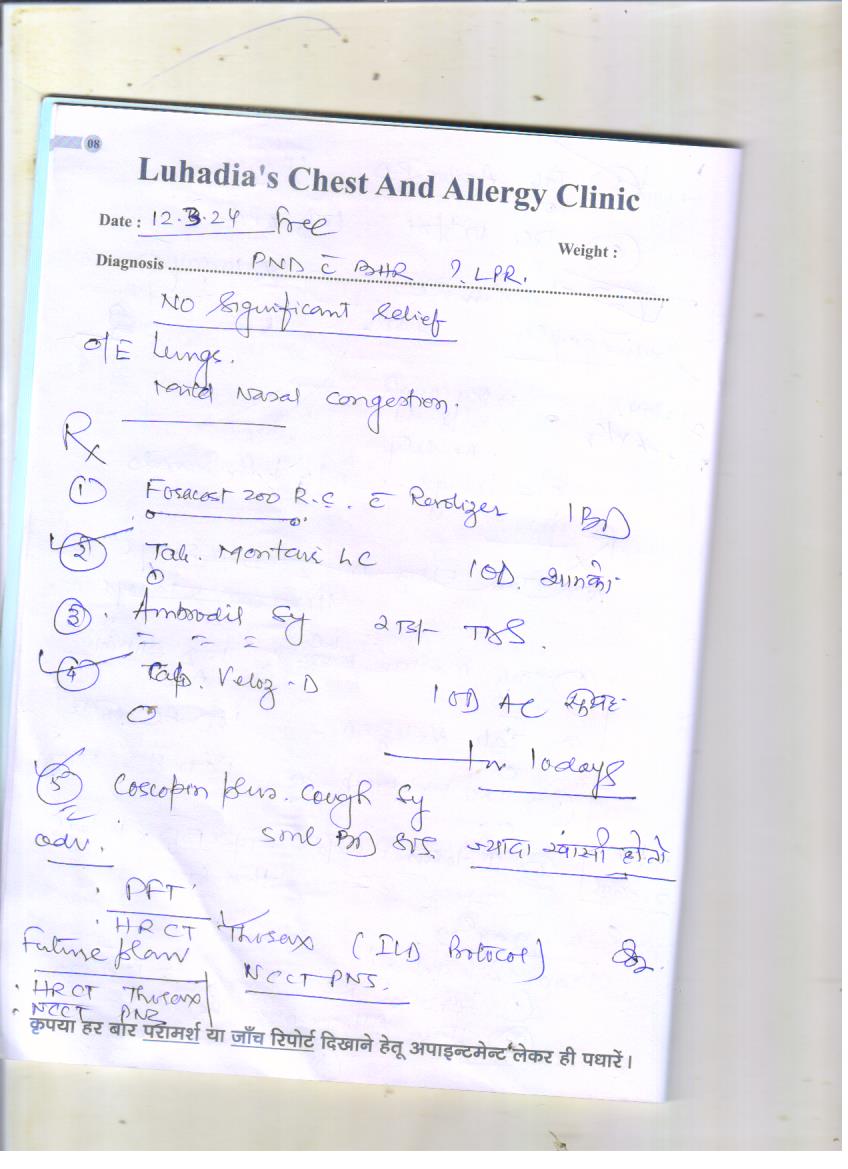 08
Luhadia's Chest And Allergy Clinic
Date : 12.3.24 free
Weight :
Diagnosis PND c̄ BHR ? LPR.
NO Significant Relief
O/E Lungs.
Nasal congestion.
Rx
① 200 R.C. c̄ Revolizer 1 BD
② Tab. Montair LC 1 OD. शामको
③ Ambrodil Sy 2 TSf TDS.
④ Veloz-D 1 OD AC सुबह
10 days
⑤ Coscopin plus. Cough Sy
5ml BD ज्यादा खांसी हो तो
adv.
• PFT
• HRCT Thorax (ILD Protocol)
NCCT PNS.
Future plan
• HRCT Thorax
• NCCT PNS
कृपया हर बार परामर्श या जाँच रिपोर्ट दिखाने हेतू अपाइन्टमेन्ट लेकर ही पधारें।